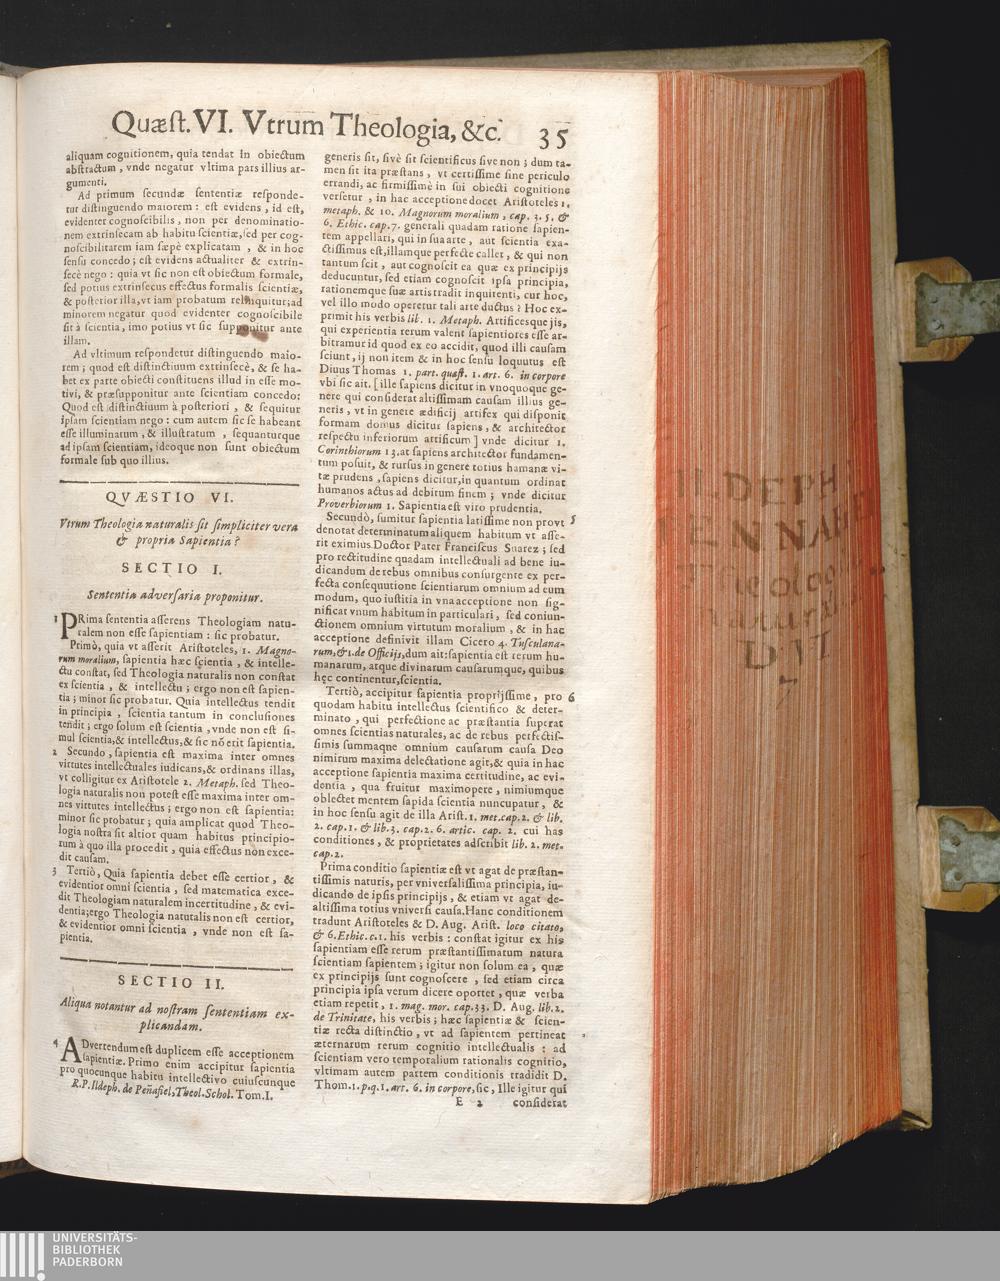 Quæst. VI. Vtrum Theologia, &c. 35
aliquam cognitionem, quia tendat in obiectum
abstractum, vnde negatur vltima pars illius ar-
gumenti.
Ad primum secundæ sententiæ responde-
tur distinguendo maiorem: est evidens, id est,
evidenter cognoscibilis, non per denominatio-
nem extrinsecam ab habitu scientiæ, sed per cog-
noscibilitatem iam sæpè explicatam, & in hoc
sensu concedo; est evidens actualiter & extrin-
secè nego: quia vt sic non est obiectum formale,
sed potius extrinsecus effectus formalis scientiæ,
& posterior illa, vt iam probatum relinquitur; ad
minorem negatur quod evidenter cognoscibile
sit à scientia, imo potius vt sic supponitur ante
illam.
Ad vltimum respondetur distinguendo maio-
rem; quod est distinctiuum extrinsecè, & se ha-
bet ex parte obiecti constituens illud in esse mo-
tivi, & præsupponitur ante scientiam concedo:
Quod est distinctiuum à posteriori, & sequitur
ipsam scientiam nego: cum autem sic se habeant
esse illuminatum, & illustratum, sequanturque
ad ipsam scientiam, ideoque non sunt obiectum
formale sub quo illius.
QVÆSTIO VI.
Vtrum Theologia naturalis sit simpliciter vera
& propria Sapientia?
SECTIO I.
Sententia adversaria proponitur.
1 PRima sententia asserens Theologiam natu-
ralem non esse sapientiam: sic probatur.
Primò, quia vt asserit Aristoteles, 1. Magno-
rum moralium, sapientia hæc scientia, & intelle-
ctu constat, sed Theologia naturalis non constat
ex scientia, & intellectu; ergo non est sapien-
tia; minor sic probatur. Quia intellectus tendit
in principia, scientia tantum in conclusiones
tendit; ergo solum est scientia, vnde non est si-
mul scientia, & intellectus, & sic nõ erit sapientia.
2 Secundo, sapientia est maxima inter omnes
virtutes intellectuales iudicans, & ordinans illas,
vt colligitur ex Aristotele 2. Metaph. sed Theo-
logia naturalis non potest esse maxima inter om-
nes virtutes intellectus; ergo non est sapientia:
minor sic probatur; quia amplicat quod Theo-
logia nostra sit altior quam habitus principio-
rum à quo illa procedit, quia effectus non exce-
dit causam.
3 Tertiò, Quia sapientia debet esse certior, &
evidentior omni scientia, sed matematica exce-
dit Theologiam naturalem incertitudine, & evi-
dentia; ergo Theologia naturalis non est certior,
& evidentior omni scientia, vnde non est sa-
pientia.
SECTIO II.
Aliqua notantur ad nostram sententiam ex-
plicandam.
4 ADvertendum est duplicem esse acceptionem
sapientiæ. Primo enim accipitur sapientia
pro quocunque habitu intellectivo cuiuscunque
R.P. Ildeph. de Peñafiel, Theol. Schol. Tom. I.
generis sit, sivè sit scientificus sive non; dum ta-
men sit ita præstans, vt certissime sine periculo
errandi, ac firmissimè in sui obiecti cognitione
versetur, in hac acceptione docet Aristoteles 1.
metaph. & 10. Magnorum moralium, cap. 3. 5. &
6. Ethic. cap. 7. generali quadam ratione sapien-
tem appellari, qui in sua arte, aut scientia exa-
ctissimus est, illamque perfecte callet, & qui non
tantum scit, aut cognoscit ea quæ ex principijs
deducuntur, sed etiam cognoscit ipsa principia,
rationemque suæ artis tradit inquirenti, cur hoc,
vel illo modo operetur tali arte ductus? Hoc ex-
primit his verbis lib. 1. Metaph. Artificesque jis,
qui experientia rerum valent sapientiores esse ar-
bitramur id quod ex eo accidit, quod illi causam
sciunt, ij non item & in hoc sensu loquutus est
Diuus Thomas 1. part. quæst. 1. art. 6. in corpore
vbi sic ait. [ille sapiens dicitur in vnoquoque ge-
nere qui considerat altissimam causam illius ge-
neris, vt in genere ædificij artifex qui disponit
formam domus dicitur sapiens, & architector
respectu inferiorum artificum] vnde dicitur 1.
Corinthiorum 13. at sapiens architector fundamen-
tum posuit, & rursus in genere totius humanæ vi-
tæ prudens, sapiens dicitur, in quantum ordinat
humanos actus ad debitum finem; vnde dicitur
Proverbiorum 1. Sapientia est viro prudentia.
Secundò, sumitur sapientia latissime non provt 5
denotat determinatum aliquem habitum vt asse-
rit eximius Doctor Pater Franciscus Suarez; sed
pro rectitudine quadam intellectuali ad bene iu-
dicandum de rebus omnibus consurgente ex per-
fecta consequutione scientiarum omnium ad eum
modum, quo iustitia in vna acceptione non sig-
nificat vnum habitum in particulari, sed coniun-
ctionem omnium virtutum moralium, & in hac
acceptione definivit illam Cicero 4. Tusculana-
rum, & 1. de Officijs, dum ait: sapientia est rerum hu-
manarum, atque divinarum causarumque, quibus
hęc continentur, scientia.
Tertiò, accipitur sapientia proprijssime, pro 6
quodam habitu intellectus scientifico & deter-
minato, qui perfectione ac præstantia superat
omnes scientias naturales, ac de rebus perfectis-
simis summaque omnium causarum causa Deo
nimirum maxima delectatione agit, & quia in hac
acceptione sapientia maxima certitudine, ac evi-
dentia, qua fruitur maximopere, nimiumque
oblectet mentem sapida scientia nuncupatur, &
in hoc sensu agit de illa Arist. 1. met. cap. 2. & lib.
2. cap. 1. & lib. 3. cap. 2. 6. artic. cap. 2. cui has
conditiones, & proprietates adscribit lib. 2. met.
cap. 2.
Prima conditio sapientiæ est vt agat de præstan-
tissimis naturis, per vniversalissima principia, iu-
dicando de ipsis principijs, & etiam vt agat de-
altissima totius vniversi causa. Hanc conditionem
tradunt Aristoteles & D. Aug. Arist. loco citato,
& 6. Ethic. c. 1. his verbis: constat igitur ex his
sapientiam esse rerum præstantissimarum natura
scientiam sapientem; igitur non solum ea, quæ
ex principijs sunt cognoscere, sed etiam circa
principia ipsa verum dicere oportet, quæ verba
etiam repetit, 1. mag. mor. cap. 33. D. Aug. lib. 2.
de Trinitate, his verbis; hæc sapientiæ & scien-
tiæ recta distinctio, vt ad sapientem pertineat
æternarum rerum cognitio intellectualis: ad
scientiam vero temporalium rationalis cognitio,
vltimam autem partem conditionis tradidit D.
Thom. 1. p. q. 1. art. 6. in corpore, sic, Ille igitur qui
E 2 considerat
UNIVERSITÄTS-
BIBLIOTHEK
PADERBORN